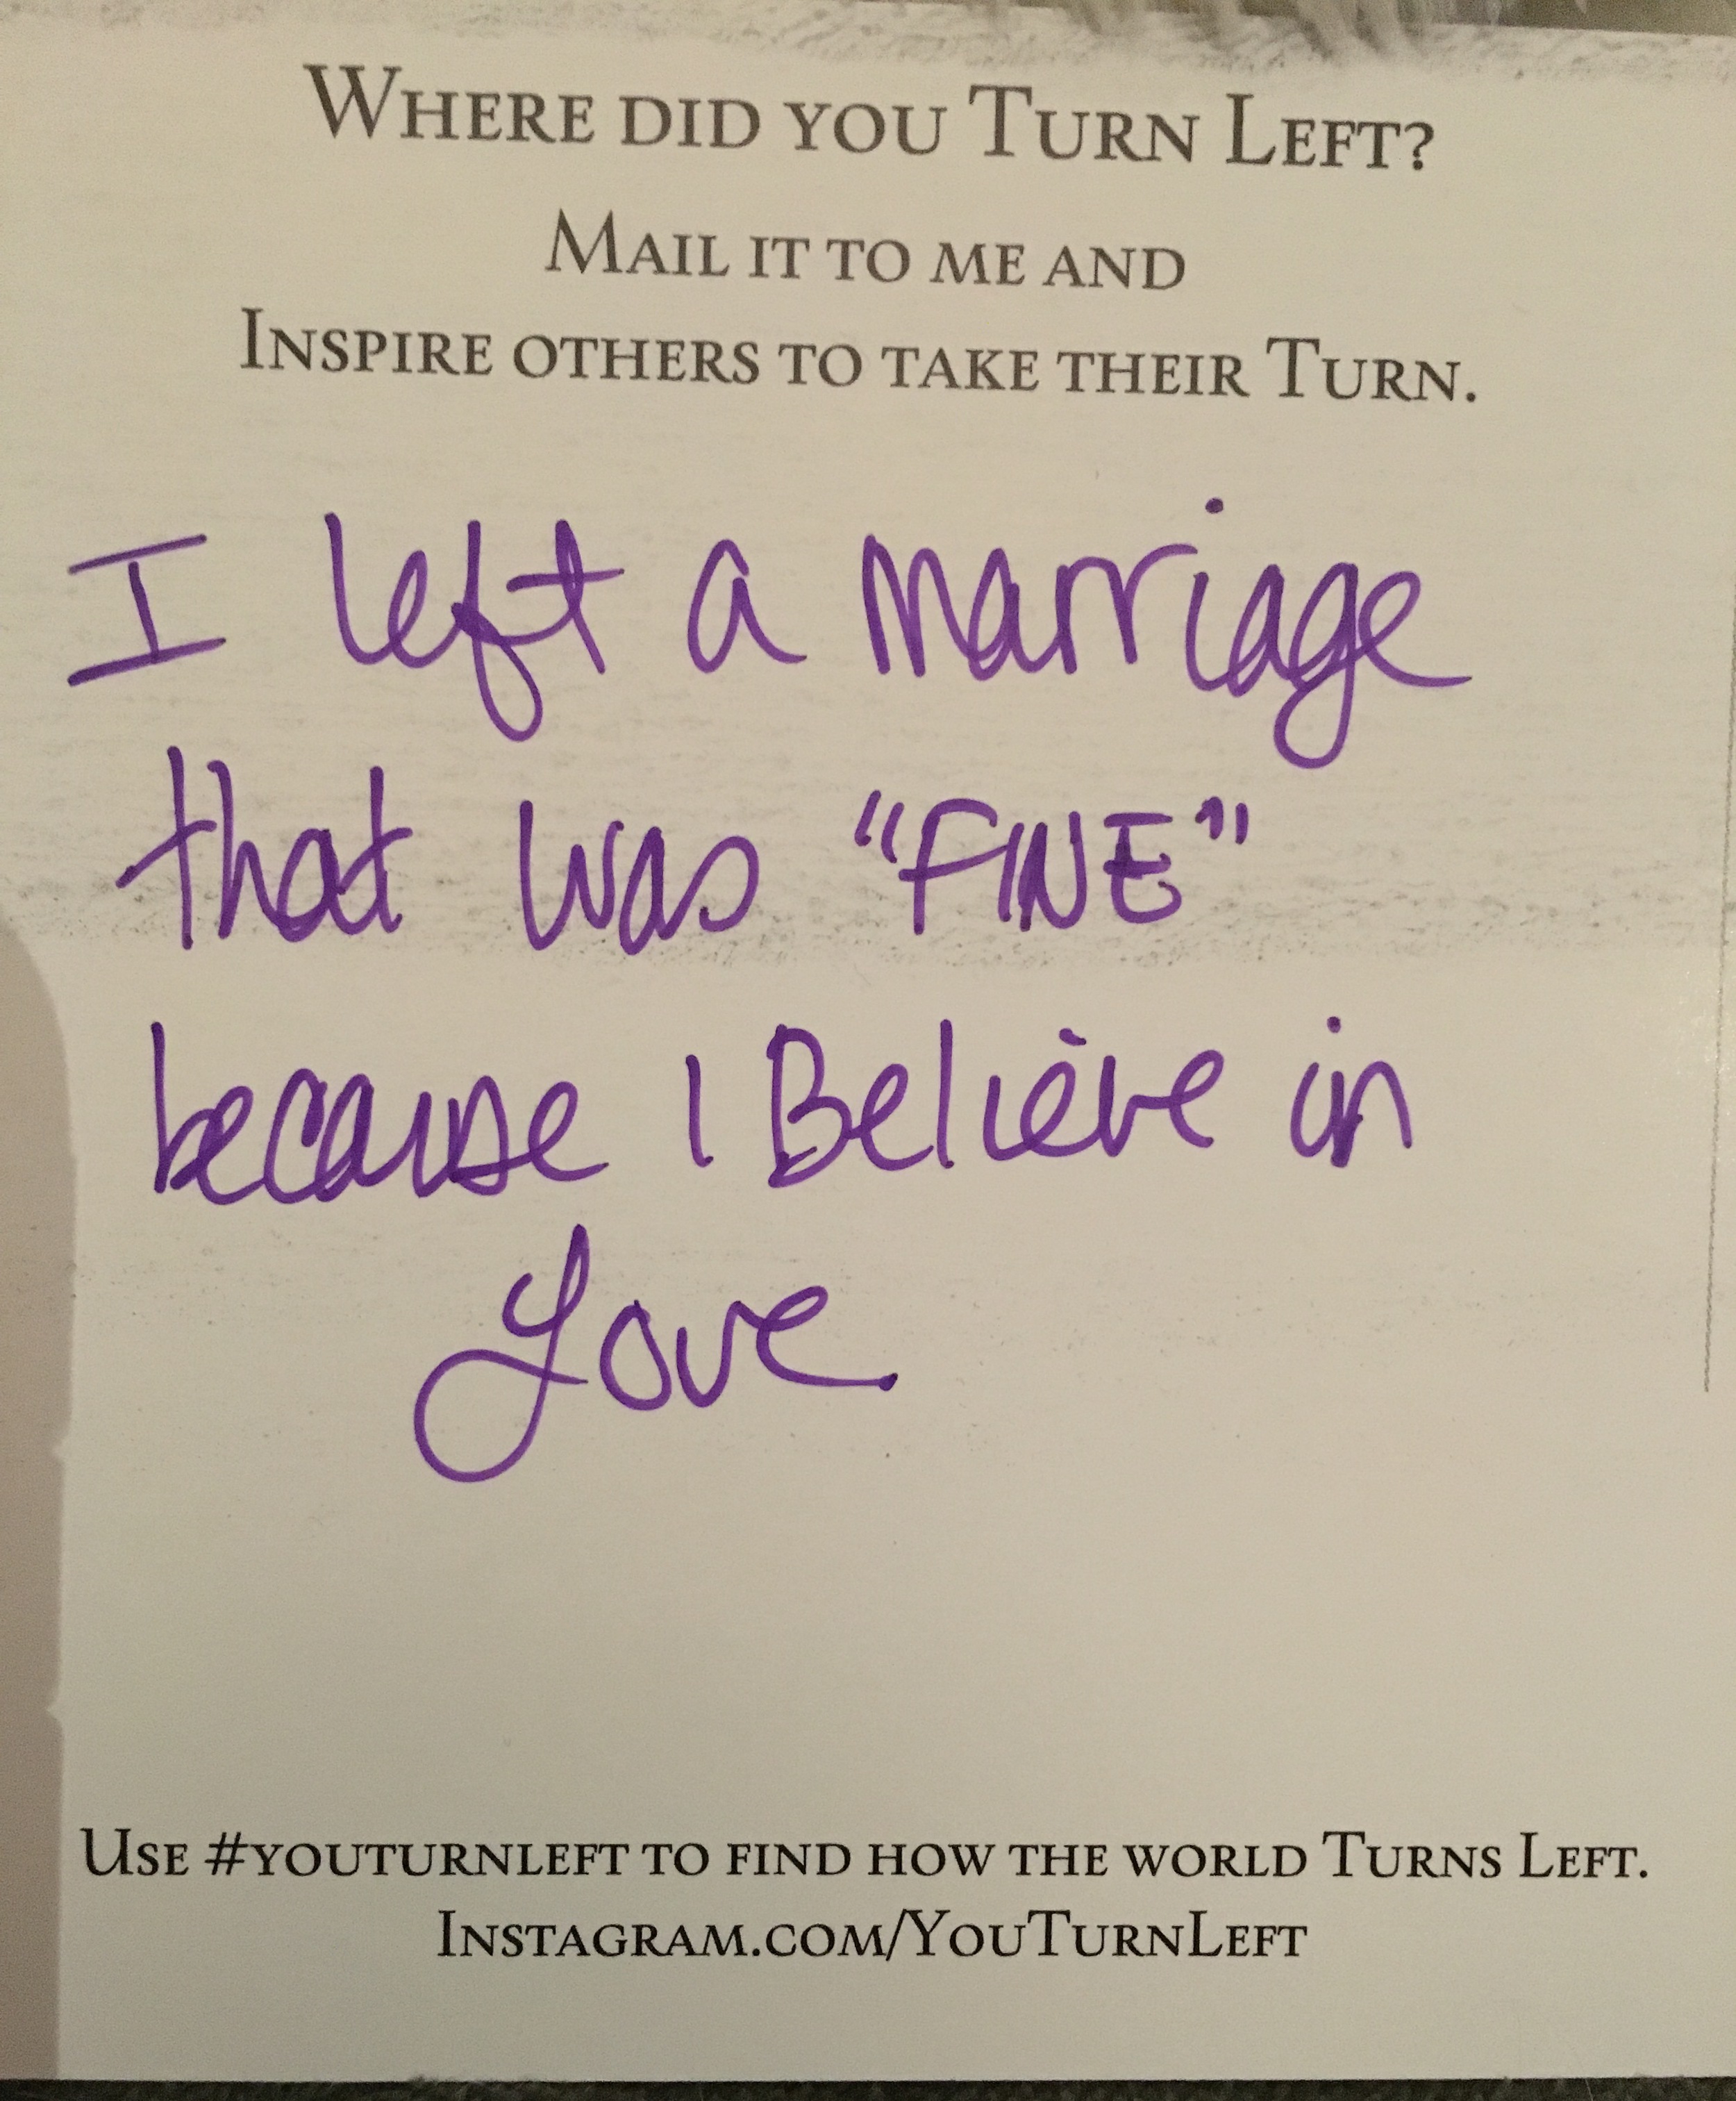 Where did you Turn Left?
Mail it to me and
Inspire others to take their Turn.
I left a marriage
that was “FINE”
because I Believe in
Love
Use #youturnleft to find how the world Turns Left.
Instagram.com/YouTurnLeft